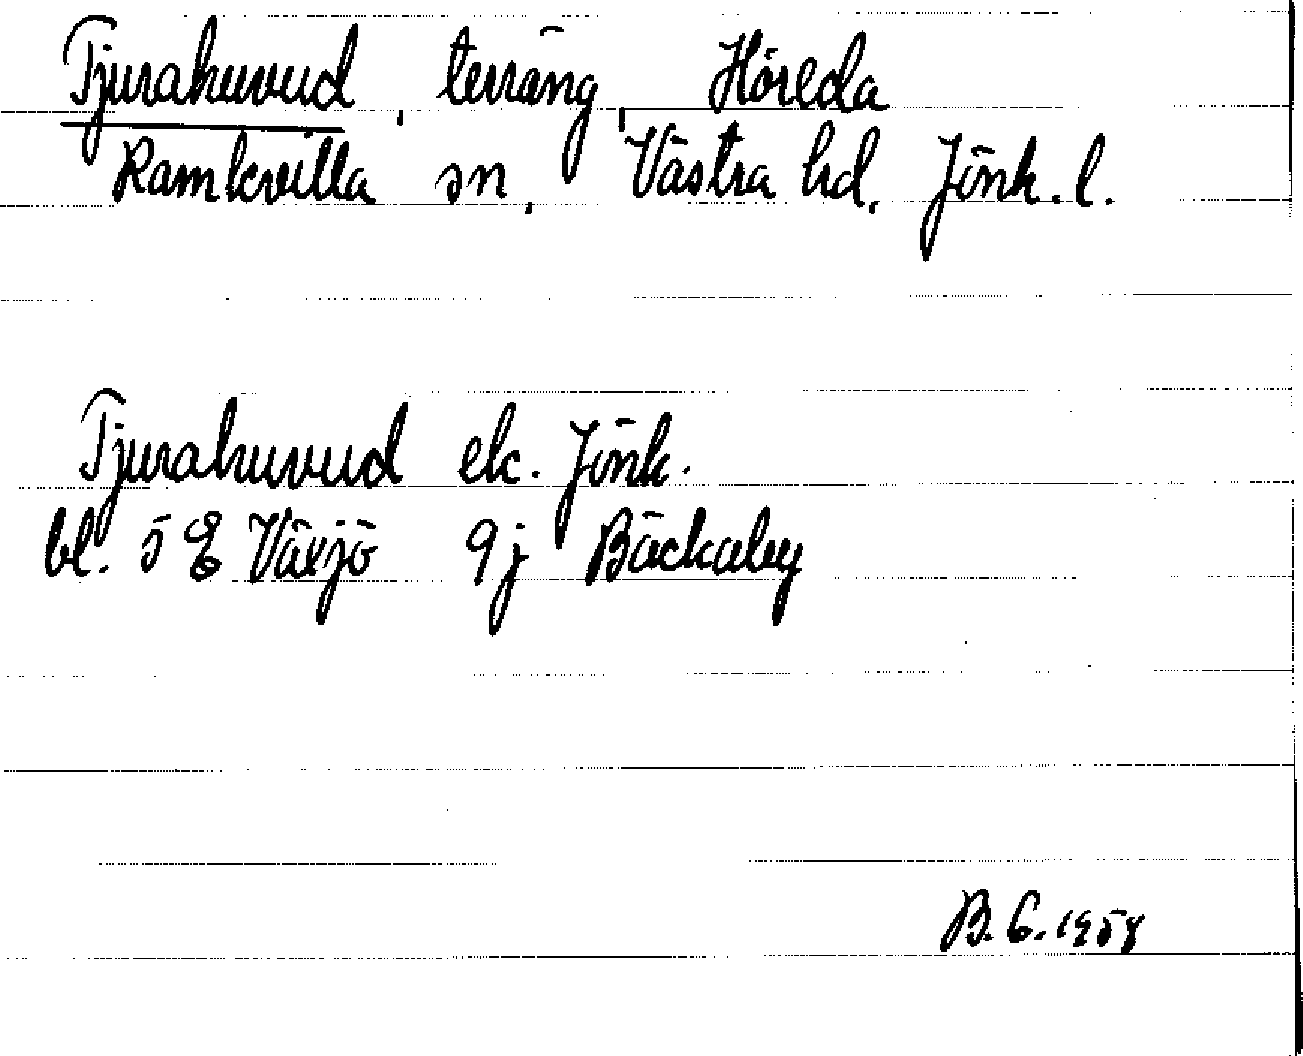 Tjurahuvud, terräng, Höreda
Ramkvilla sn, Västra hd, Jönk. l.
Tjurahuvud ek. Jönk.
bl. 5 E Växjö 9j Bäckaby
B. G. 1958